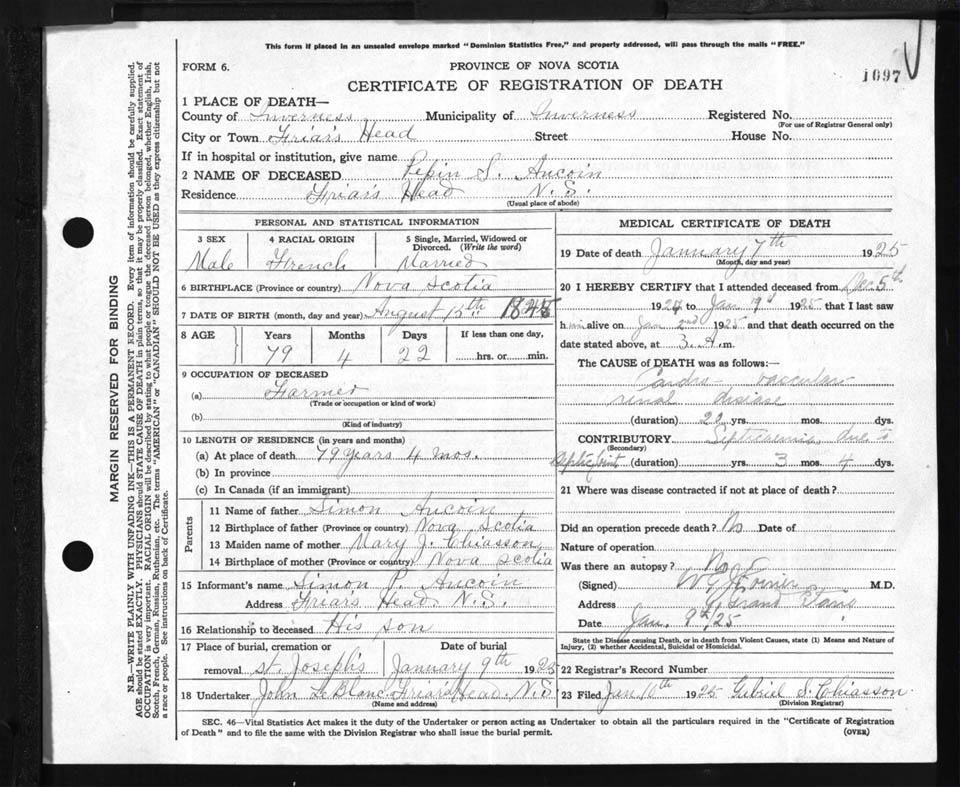 This form if placed in an unsealed envelope marked "Dominion Statistics Free," and properly addressed, will pass through the mails "FREE."
FORM 6.
PROVINCE OF NOVA SCOTIA
1697
CERTIFICATE OF REGISTRATION OF DEATH
1 PLACE OF DEATH—
County of Inverness Municipality of Inverness Registered No.
(For use of Registrar General only)
City or Town Friar's Head Street House No.
If in hospital or institution, give name
2 NAME OF DECEASED Pepin S. Aucoin
Residence Friar's Head N.S.
(Usual place of abode)
PERSONAL AND STATISTICAL INFORMATION
3 SEX 4 RACIAL ORIGIN 5 Single, Married, Widowed or Divorced. (Write the word)
Male French Married
6 BIRTHPLACE (Province or country) Nova Scotia
7 DATE OF BIRTH (month, day and year) August 15th 1845
8 AGE Years Months Days If less than one day,
79 4 22 hrs. or min.
9 OCCUPATION OF DECEASED
(a) Farmer
(Trade or occupation or kind of work)
(b)
(Kind of industry)
10 LENGTH OF RESIDENCE (in years and months)
(a) At place of death 79 years 4 mos.
(b) In province
(c) In Canada (if an immigrant)
Parents
11 Name of father Simon Aucoin
12 Birthplace of father (Province or country) Nova Scotia
13 Maiden name of mother Mary J. Chiasson
14 Birthplace of mother (Province or country) Nova Scotia
15 Informant's name Simon P. Aucoin
Address Friar's Head N.S.
16 Relationship to deceased His son
17 Place of burial, cremation or Date of burial
removal St. Joseph's January 9th 1925
18 Undertaker John LeBlanc Friar's Head N.S
(Name and address)
MEDICAL CERTIFICATE OF DEATH
19 Date of death January 7th 1925
(Month, day and year)
20 I HEREBY CERTIFY that I attended deceased from Dec. 5th
1924 to Jan 1925 that I last saw
him alive on Jan 2nd 1925 and that death occurred on the
date stated above, at 3. A.m.
The CAUSE OF DEATH was as follows:—
Cardio-vascular
renal disease
(duration) 20 yrs. mos. dys.
CONTRIBUTORY Septicaemia due to
(Secondary)
septic joint (duration) yrs. 3 mos. 4 dys.
21 Where was disease contracted if not at place of death?
Did an operation precede death? No Date of
Nature of operation
Was there an autopsy? No
(Signed) M.D.
Address Grand Etang
Date Jan. 9th/25
State the Disease causing Death, or in death from Violent Causes, state (1) Means and Nature of
Injury, (2) whether Accidental, Suicidal or Homicidal.
22 Registrar's Record Number
23 Filed Jan. 10th 1925 Gabriel S. Chiasson
(Division Registrar)
SEC. 46—Vital Statistics Act makes it the duty of the Undertaker or person acting as Undertaker to obtain all the particulars required in the "Certificate of Registration
of Death" and to file the same with the Division Registrar who shall issue the burial permit.
(OVER)
MARGIN RESERVED FOR BINDING
N.B.—WRITE PLAINLY WITH UNFADING INK—THIS IS A PERMANENT RECORD. Every item of information should be carefully supplied.
AGE should be stated EXACTLY. PHYSICIANS should STATE CAUSE OF DEATH in plain terms, so that it may be properly classified. Exact statement of
OCCUPATION is very important. RACIAL ORIGIN will be described by stating to what people or tongue the deceased person belonged, whether English, Irish,
Scotch, French, German, Russian, Ruthenian, etc. The terms "AMERICAN" or "CANADIAN" SHOULD NOT BE USED as they express citizenship but not
a race or people. See instructions on back of Certificate.